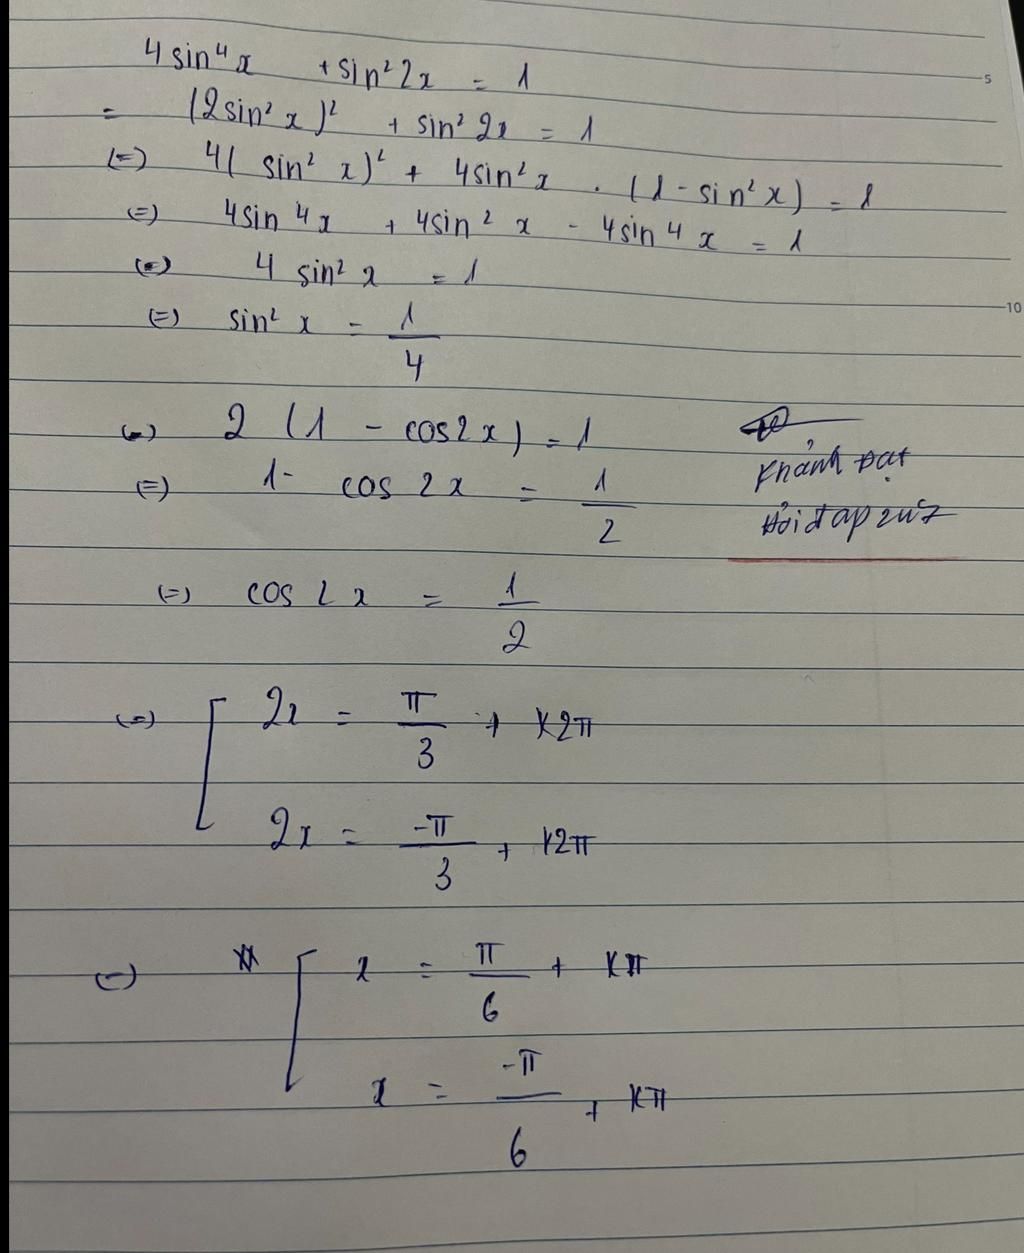 4 sin⁴ x + sin² 2x = 1
= (2 sin² x)² + sin² 2x = 1
(=) 4( sin² x)² + 4 sin² x . (1 - sin² x) = 1
(=) 4 sin 4 x + 4 sin² x - 4 sin 4 x = 1
(=) 4 sin² x = 1
(=) sin² x = 1/4
(=) 2 (1 - cos 2x) = 1
(=) 1 - cos 2x = 1/2
Khánh Đạt
Hỏi đáp 247
(=) cos 2x = 1/2
(=) [ 2x = π/3 + K2π
2x = -π/3 + K2π
(=) [ x = π/6 + Kπ
x = -π/6 + Kπ
5
10